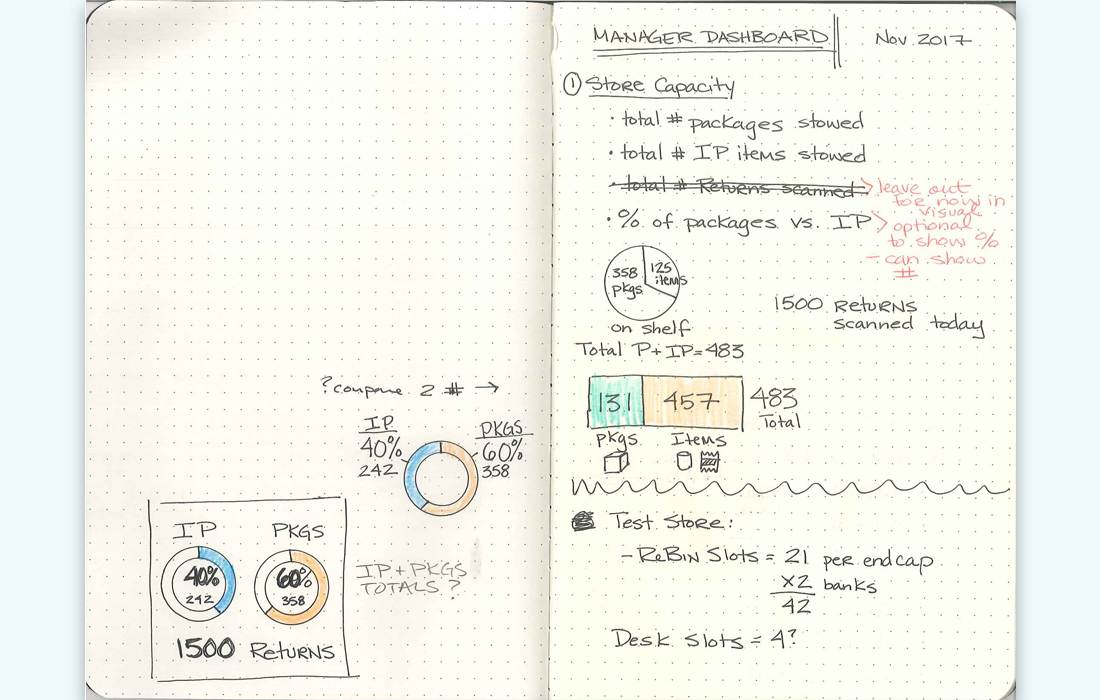 ? compare 2 # →
IP
40%
242
PKGS
60%
358
IP
40%
242
PKGS
60%
358
1500 RETURNS
IP + PKGS
TOTALS ?
MANAGER DASHBOARD
Nov 2017
① Store Capacity
• total # packages stowed
• total # IP items stowed
• total # Returns scanned
> leave out
for now in
visual
• % of packages vs. IP
> optional
to show %
- can show
#
358
pkgs
125
items
on shelf
1500 RETURNS
scanned today
Total P + IP = 483
131
457
483
Total
Pkgs
Items
Test Store:
- ReBIN Slots = 21 per endcap
x2 banks
42
Desk Slots = 4?